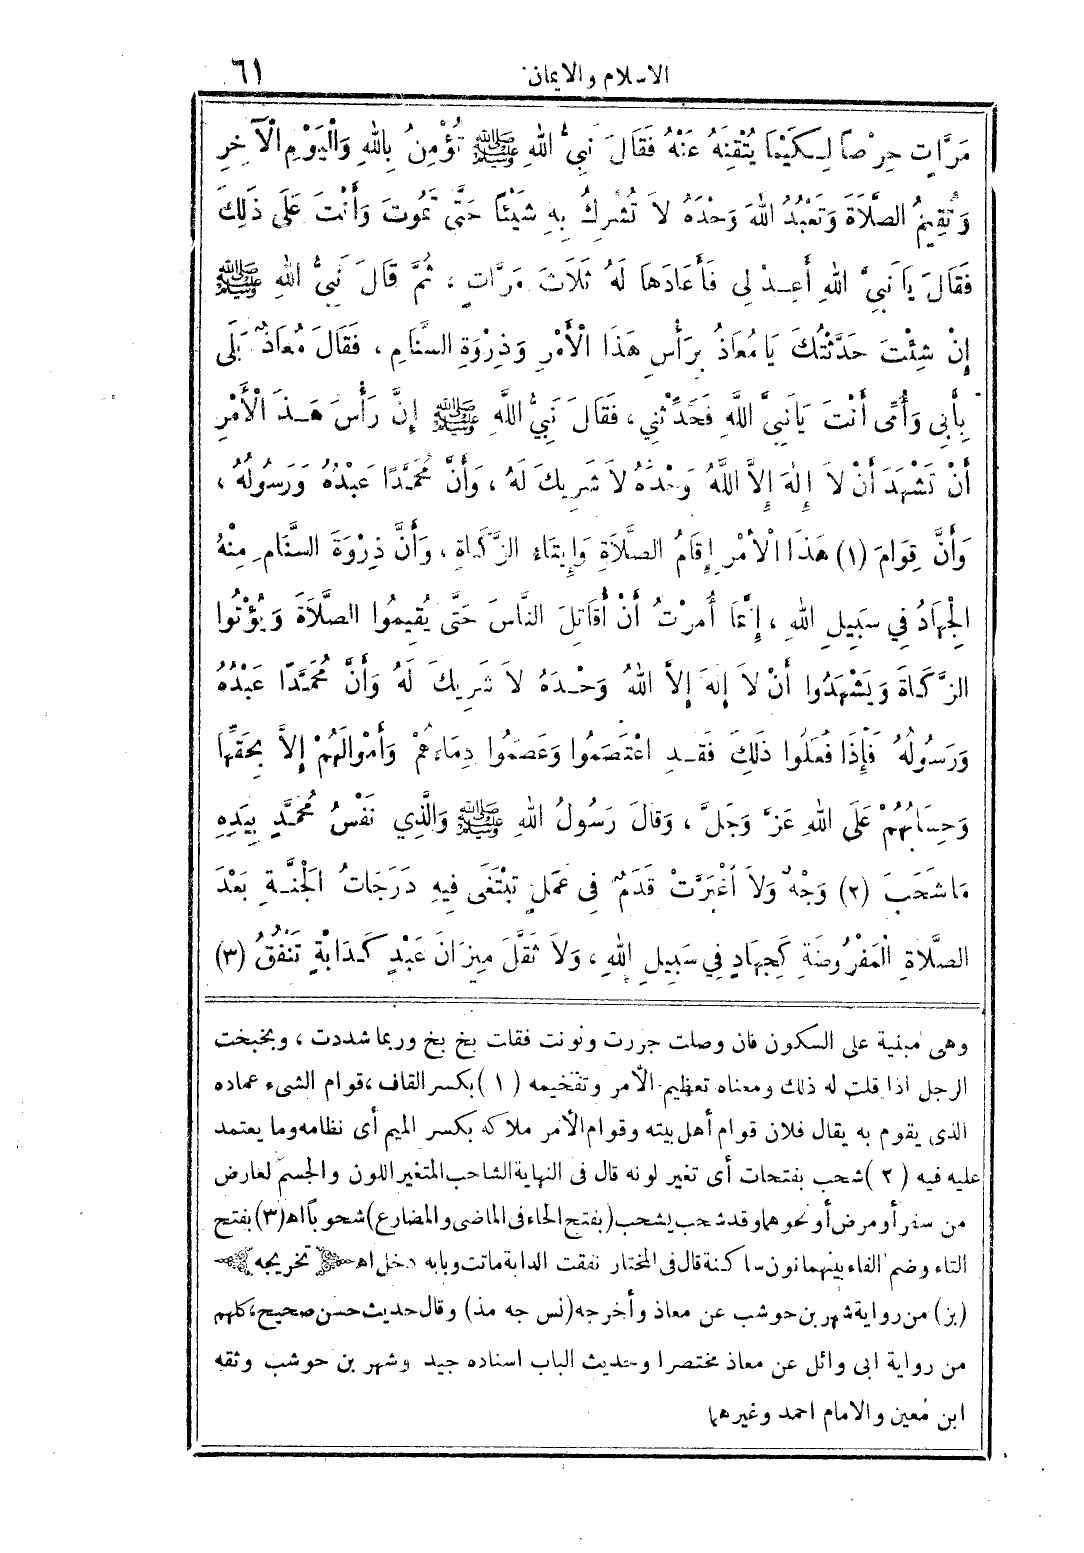 الاسلام والايمان
٦١
مَرَّاتٍ حِرْصاً لِـكَيْمَا يُتْقِنَهُ عَنْهُ فَقَالَ نَبِيُّ اللهِ ﷺ تُؤْمِنُ بِاللهِ وَالْيَوْمِ الْآخِرِ
وَتُقِيمُ الصَّلَاةَ وَتَعْبُدُ اللهَ وَحْدَهُ لاَ تُشْرِكُ بِهِ شَيْئاً حَتَّى تَمُوتَ وَأَنْتَ عَلَى ذَلِكَ
فَقَالَ يَا نَبِيَّ اللهِ أَعِـدْ لِى فَأَعَادَهَا لَهُ ثَلَاثَ مَرَّاتٍ ، ثُمَّ قَالَ نَبِيُّ اللهِ ﷺ
إِنْ شِئْتَ حَدَّثْتُكَ يَا مُعَاذُ بِرَأْسِ هَذَا الْأَمْرِ وَذِرْوَةِ السَّنَامِ ، فَقَالَ مُعَاذٌ بَلَى
بِأَبِى وَأُمِّى أَنْتَ يَا نَبِىَّ اللَّهِ فَحَدِّثْنِي ، فَقَالَ نَبِيُّ اللَّهِ ﷺ إِنَّ رَأْسَ هَـذَا الْأَمْرِ
أَنْ تَشْهَدَ أَنْ لاَ إِلَهَ إِلاَّ اللَّهُ وَحْدَهُ لاَ شَرِيكَ لَهُ ، وَأَنَّ مُحَمَّدًا عَبْدُهُ وَرَسُولُهُ ،
وَأَنَّ قِوَامَ (١) هَذَا الْأَمْرِ إِقَامُ الصَّلَاةِ وَإِيتَاءِ الزَّكَاةِ ، وَأَنَّ ذِرْوَةَ السَّنَامِ مِنْهُ
الْجِهَادُ فِي سَبِيلِ اللهِ ، إِنَّمَا أُمِرْتُ أَنْ أُقَاتِلَ النَّاسَ حَتَّى يُقِيمُوا الصَّلاَةَ وَيُؤْتُوا
الزَّكَاةَ وَيَشْهَدُوا أَنْ لاَ إِلهَ إِلاَّ اللهُ وَحْـدَهُ لاَ شَرِيكَ لَهُ وَأَنَّ مُحَمَّدًا عَبْدُهُ
وَرَسُولُهُ فَإِذَا فَعَلُوا ذَلِكَ فَقَـدِ اعْتَصَمُوا وَعَصَمُوا دِمَاءَهُمْ وَأَمْوَالَهُمْ إِلاَّ بِحَقِّهَا
وَحِسَابُهُمْ عَلَى اللهِ عَزَّ وَجَلَّ ، وَقَالَ رَسُولُ اللهِ ﷺ وَالَّذِي نَفْسُ مُحَمَّدٍ بِيَدِهِ
مَا شَحَبَ (٢) وَجْهٌ وَلاَ اغْبَرَّتْ قَدَمٌ فِى عَمَلٍ تُبْتَغَى فِيهِ دَرَجَاتُ الْجَنَّـةِ بَعْدَ
الصَّلَاةِ الْمَفْرُوضَةِ كَجِهَادٍ فِي سَبِيلِ اللهِ ، وَلاَ ثَقَّلَ مِيزَانَ عَبْدٍ كَـدَابَّةٍ تَنْفُقُ (٣)
وهى مبنية على السكون فان وصلت جررت ونونت فقلت بخ بخ وربما شددت ، وبخبخت
الرجل اذا قلت له ذلك ومعناه تعظيم الأمر وتفخيمه ( ١ ) بكسر القاف ، قوام الشىء عماده
الذى يقوم به يقال فلان قوام أهل بيته وقوام الأمر ملاكه بكسر الميم أى نظامه وما يعتمد
عليه فيه ( ٢ ) شحب بفتحات أى تغير لونه قال فى النهاية الشاحب المتغير اللون والجسم لعارض
من سفر أو مرض أو نحوهما وقد شحب يشحب (بفتح الحاء فى الماضى والمضارع) شحوباً اه (٣) بفتح
التاء وضم الفاء بينهما نون ساكنة قال فى المختار نفقت الدابة ماتت وبابه دخل اه ﴿ تخريجه ﴾
(بز) من رواية شهر بن حوشب عن معاذ وأخرجه (نس جه مذ) وقال حديث حسن صحيح، كلهم
من رواية ابى وائل عن معاذ مختصرا وحديث الباب اسناده جيد وشهر بن حوشب وثقه
ابن معين والامام احمد وغيرهما